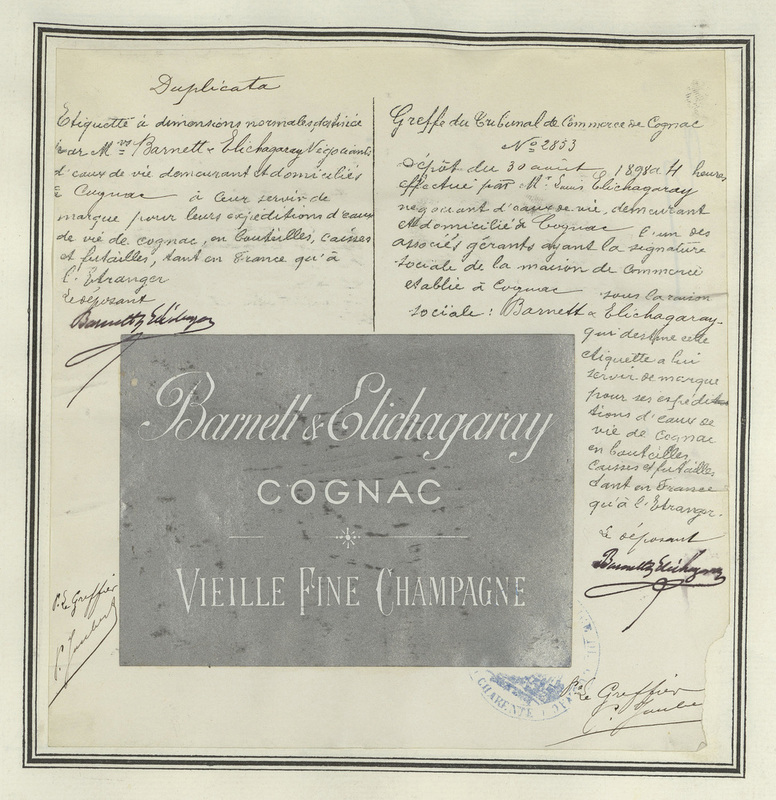 Duplicata
Etiquette à dimensions normales, destinée
par Mrs Barnett & Elichagaray Négociants
d'eaux de vie demeurant et domiciliés
à Cognac à leur servir de
marque pour leurs expéditions d'eaux
de vie de cognac, en bouteilles, caisses
et futailles, tant en France qu'à
l'Etranger
Le déposant
Barnett & Elichagaray
Greffe du Tribunal de Commerce de Cognac
No 2853
Dépôt du 30 août 1898 à 4 heures
effectué par Mr Louis Elichagaray
négociant d'eaux de vie, demeurant
et domicilié à Cognac l'un des
associés gérants ayant la signature
sociale de la maison de commerce
établie à Cognac sous la raison
sociale : Barnett & Elichagaray
qui destine cette
étiquette à lui
servir de marque
pour ses expédi
tions d'eaux de
vie de cognac
en bouteilles
caisses et futailles
tant en France
qu'à l'Etranger.
Le déposant
Barnett & Elichagaray
Barnett & Elichagaray
COGNAC
VIEILLE FINE CHAMPAGNE
P. Le Greffier
P. Le Greffier
CHARENTE